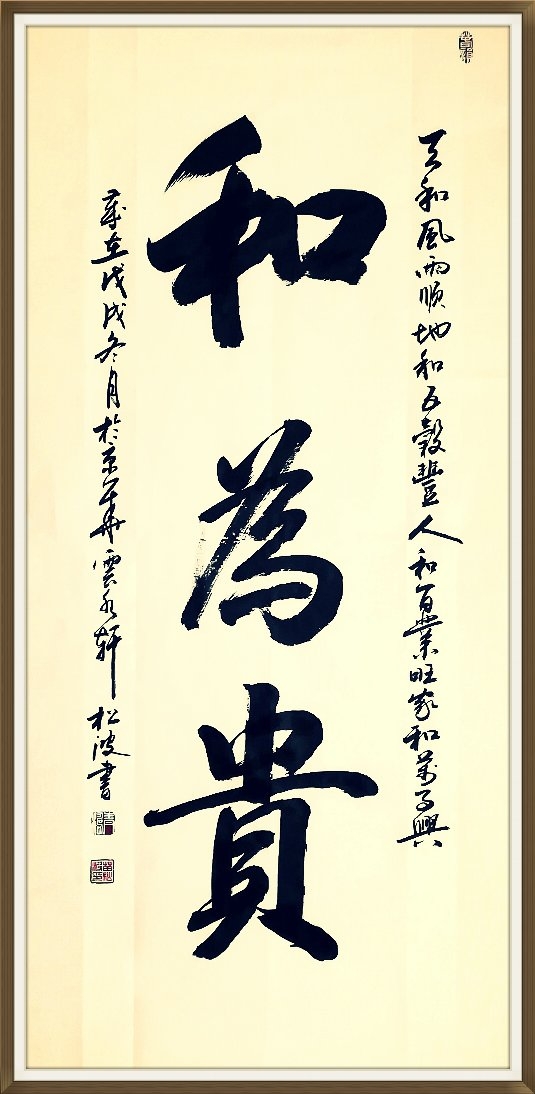 天和風雨順地和五穀豐人和百業旺家和萬事興
和為貴
歲在戊戌冬月於京華雲水軒松波書